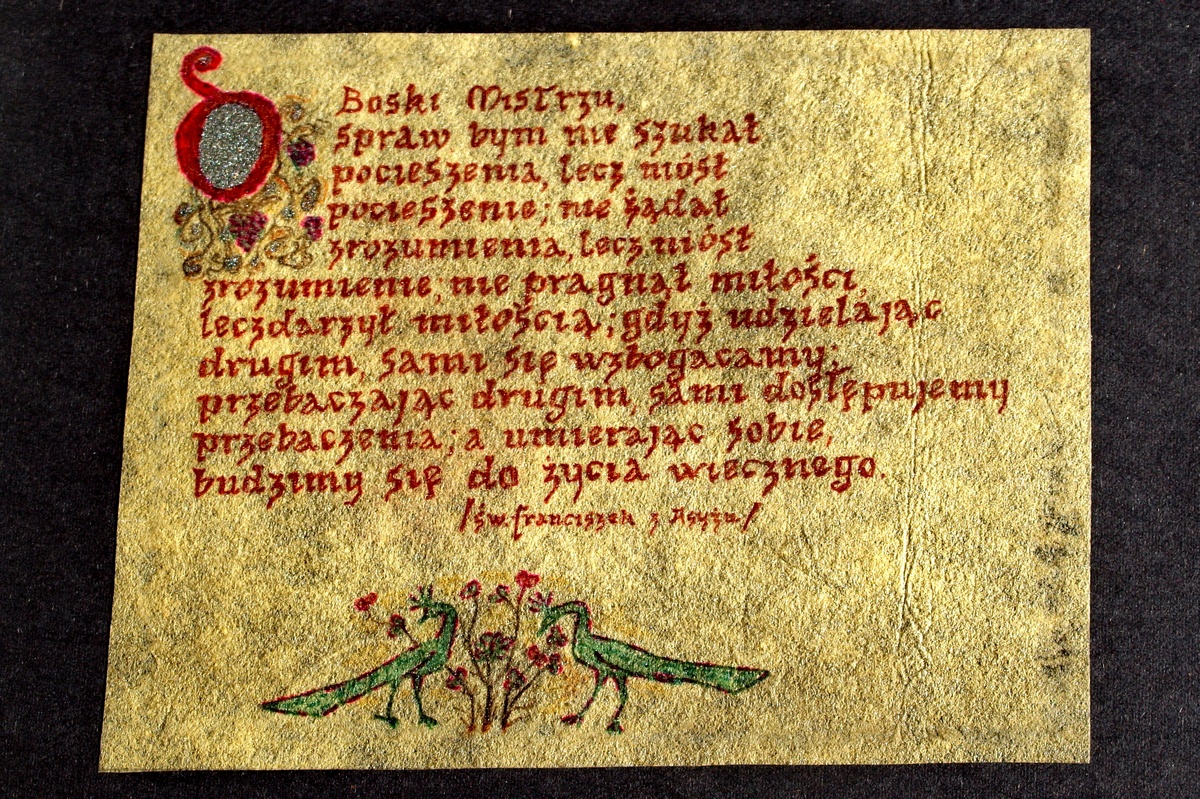 O Boski Mistrzu,
spraw bym nie szukał
pocieszenia, lecz niósł
pocieszenie; nie żądał
zrozumienia, lecz niósł
zrozumienie; nie pragnął miłości,
lecz darzył miłością; gdyż udzielając
drugim, sami się wzbogacamy;
przebaczając drugim, sami dostępujemy
przebaczenia; a umierając sobie,
budzimy się do życia wiecznego.
/św. Franciszek z Asyżu./